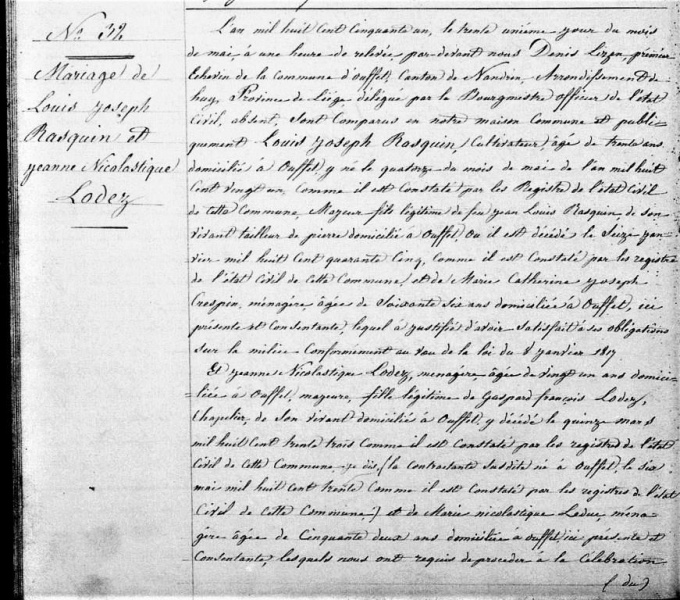 N° 32
Mariage de
Louis Joseph
Rasquin et
Jeanne Nicolastique
Lodez
L'an mil huit Cent Cinquante un, le trente unième jour du mois
de mai, à une heure de relevée par-devant nous Denis Lizen, premier
Echevin de la commune d'ouffet, Canton de Nandrin, Arrondissement de
huy, Province de Liège délégué par le Bourgmestre officier de l'état
Civil, absent, Sont Comparus en notre maison Commune et publi-
quement Louis Joseph Rasquin, Cultivateur, âgé de trente ans
domicilié à Ouffet, y né le quatorze du mois de mai de l'an mil huit
Cent vingt un, Comme il est Constaté par les Registres de l'état Civil
de Cette Commune, Majeur fils légitime de feu Jean Louis Rasquin de son
vivant tailleur de pierre domicilié à Ouffet, Où il est décédé le Seize jan-
vier mil huit Cent quarante Cinq, Comme il est Constaté par les registres
de l'état Civil de Cette Commune, et de Marie Catherine Joseph
Crespin, ménagère, âgée de Soixante Six ans domiciliée à Ouffet, ici
présente et Consentante, lequel à justifié d'avoir Satisfait à ses obligations
sur la milice Conformément au vœu de la loi du 8 janvier 1817
Et Jeanne Nicolastique Lodez, menagère, âgée de vingt un ans domici-
liée à Ouffet, majeure, fille légitime de Gaspard françois Lodez,
Chapelier, de Son vivant domicilié à Ouffet, y décédé le quinze mars
mil huit Cent trente trois Comme il est Constaté par les registres de l'état
Civil de Cette Commune, je dis, (la Contractante Susdite né à Ouffet, le six
mai mil huit Cent trente Comme il est Constaté par les registres de l'état
Civil de Cette Commune:) et de Marie nicolastique Leduc, ména
gère âgée de Cinquante deux ans domiciliée à ouffet, ici présente et
Consentante, lesquels nous ont requis de proceder à la Célébration
(du)